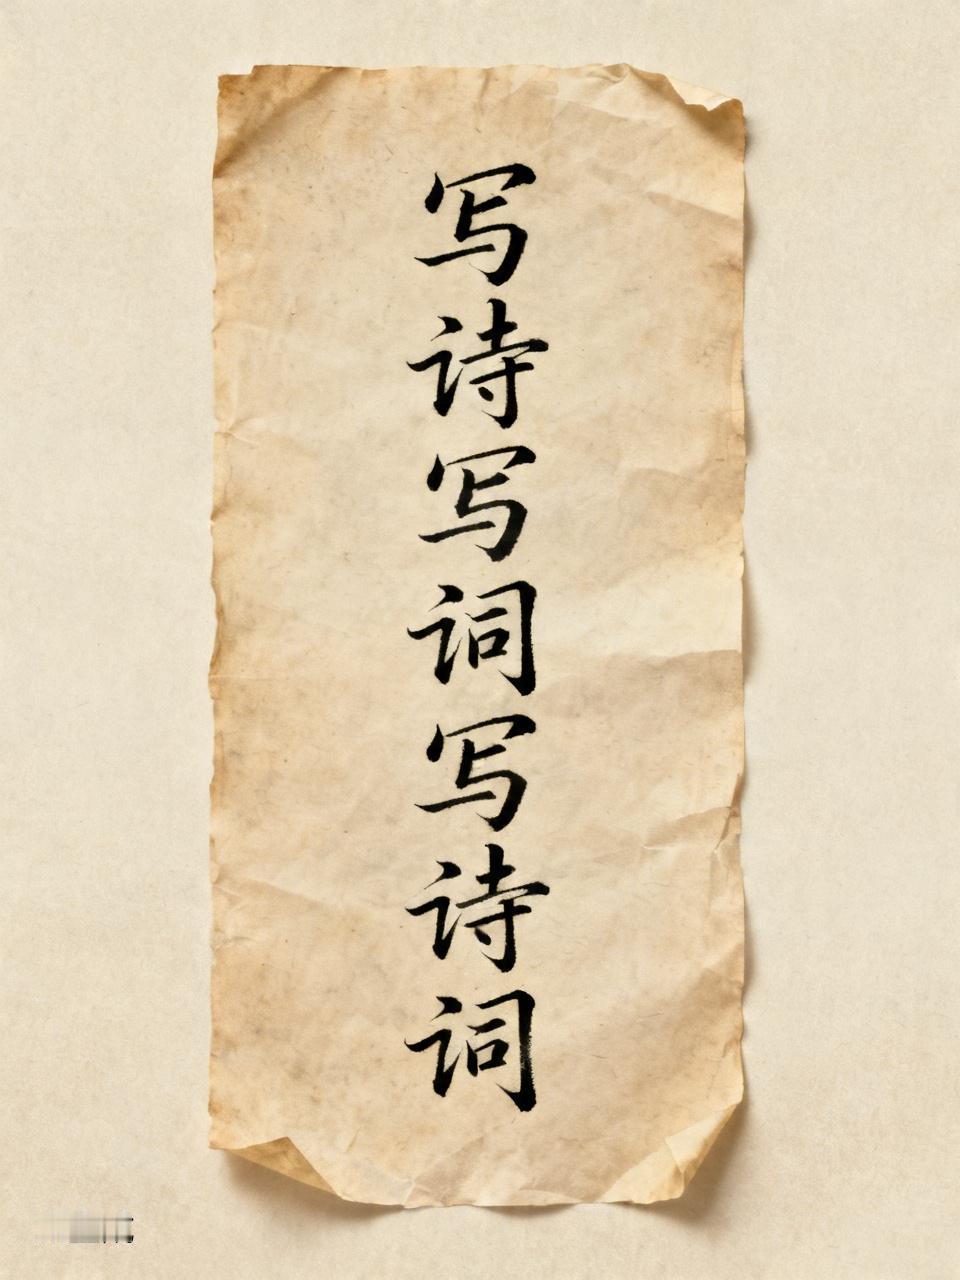 写诗写词写诗词